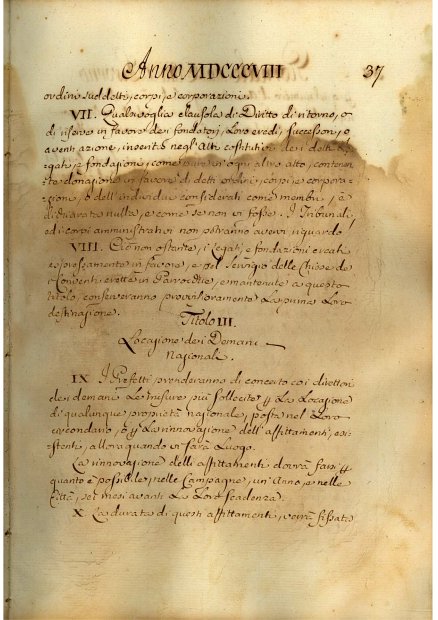 Anno MDCCCVIII 37
ordini suddetti, corpi, e corporazioni.
VII. Qualsivoglia clausola di Diritto di ritorno, o
di riserve in favore dei fondatori, Loro eredi, successori, o
aventi azione, inserita negl'Atti costitutivi dei detti Le-
gati, e fondazioni, come pure in ogni altro atto, contenen-
te donazione in favore di detti ordini, corpi, e corpora-
zioni, o dell'individui considerati come membri, è
dichiarata nulla, e come se non vi fosse. I Tribunali,
ed i corpi amministrativi non potranno avervi riguardo.
VIII. Ciò non ostante, i Legati, e fondazioni create
espressamente in favore, e pel servigio delle Chiese de'
Conventi erette in Parrocchie, e mantenute a questo
titolo, conserveranno provvisoriamente La prima Loro
destinazione.
Titolo III.
Locazione dei Demani
Nazionali.
IX. I Prefetti prenderanno di concerto coi direttori
dei demani Le misure più sollecite p La Locazione
di qualunque proprietà nazionale, posta nel Loro
circondario, e p La rinnovazione dell'affittamenti, esi-
stenti, allora quando vi sarà Luogo.
La rinnovazione delli affittamenti dovrà farsi p
quanto è possibile, nelle Campagne, un'Anno, e nelle
Città, sei mesi avanti La Loro scadenza.
X. La durata di questi affittamenti, verrà fissata